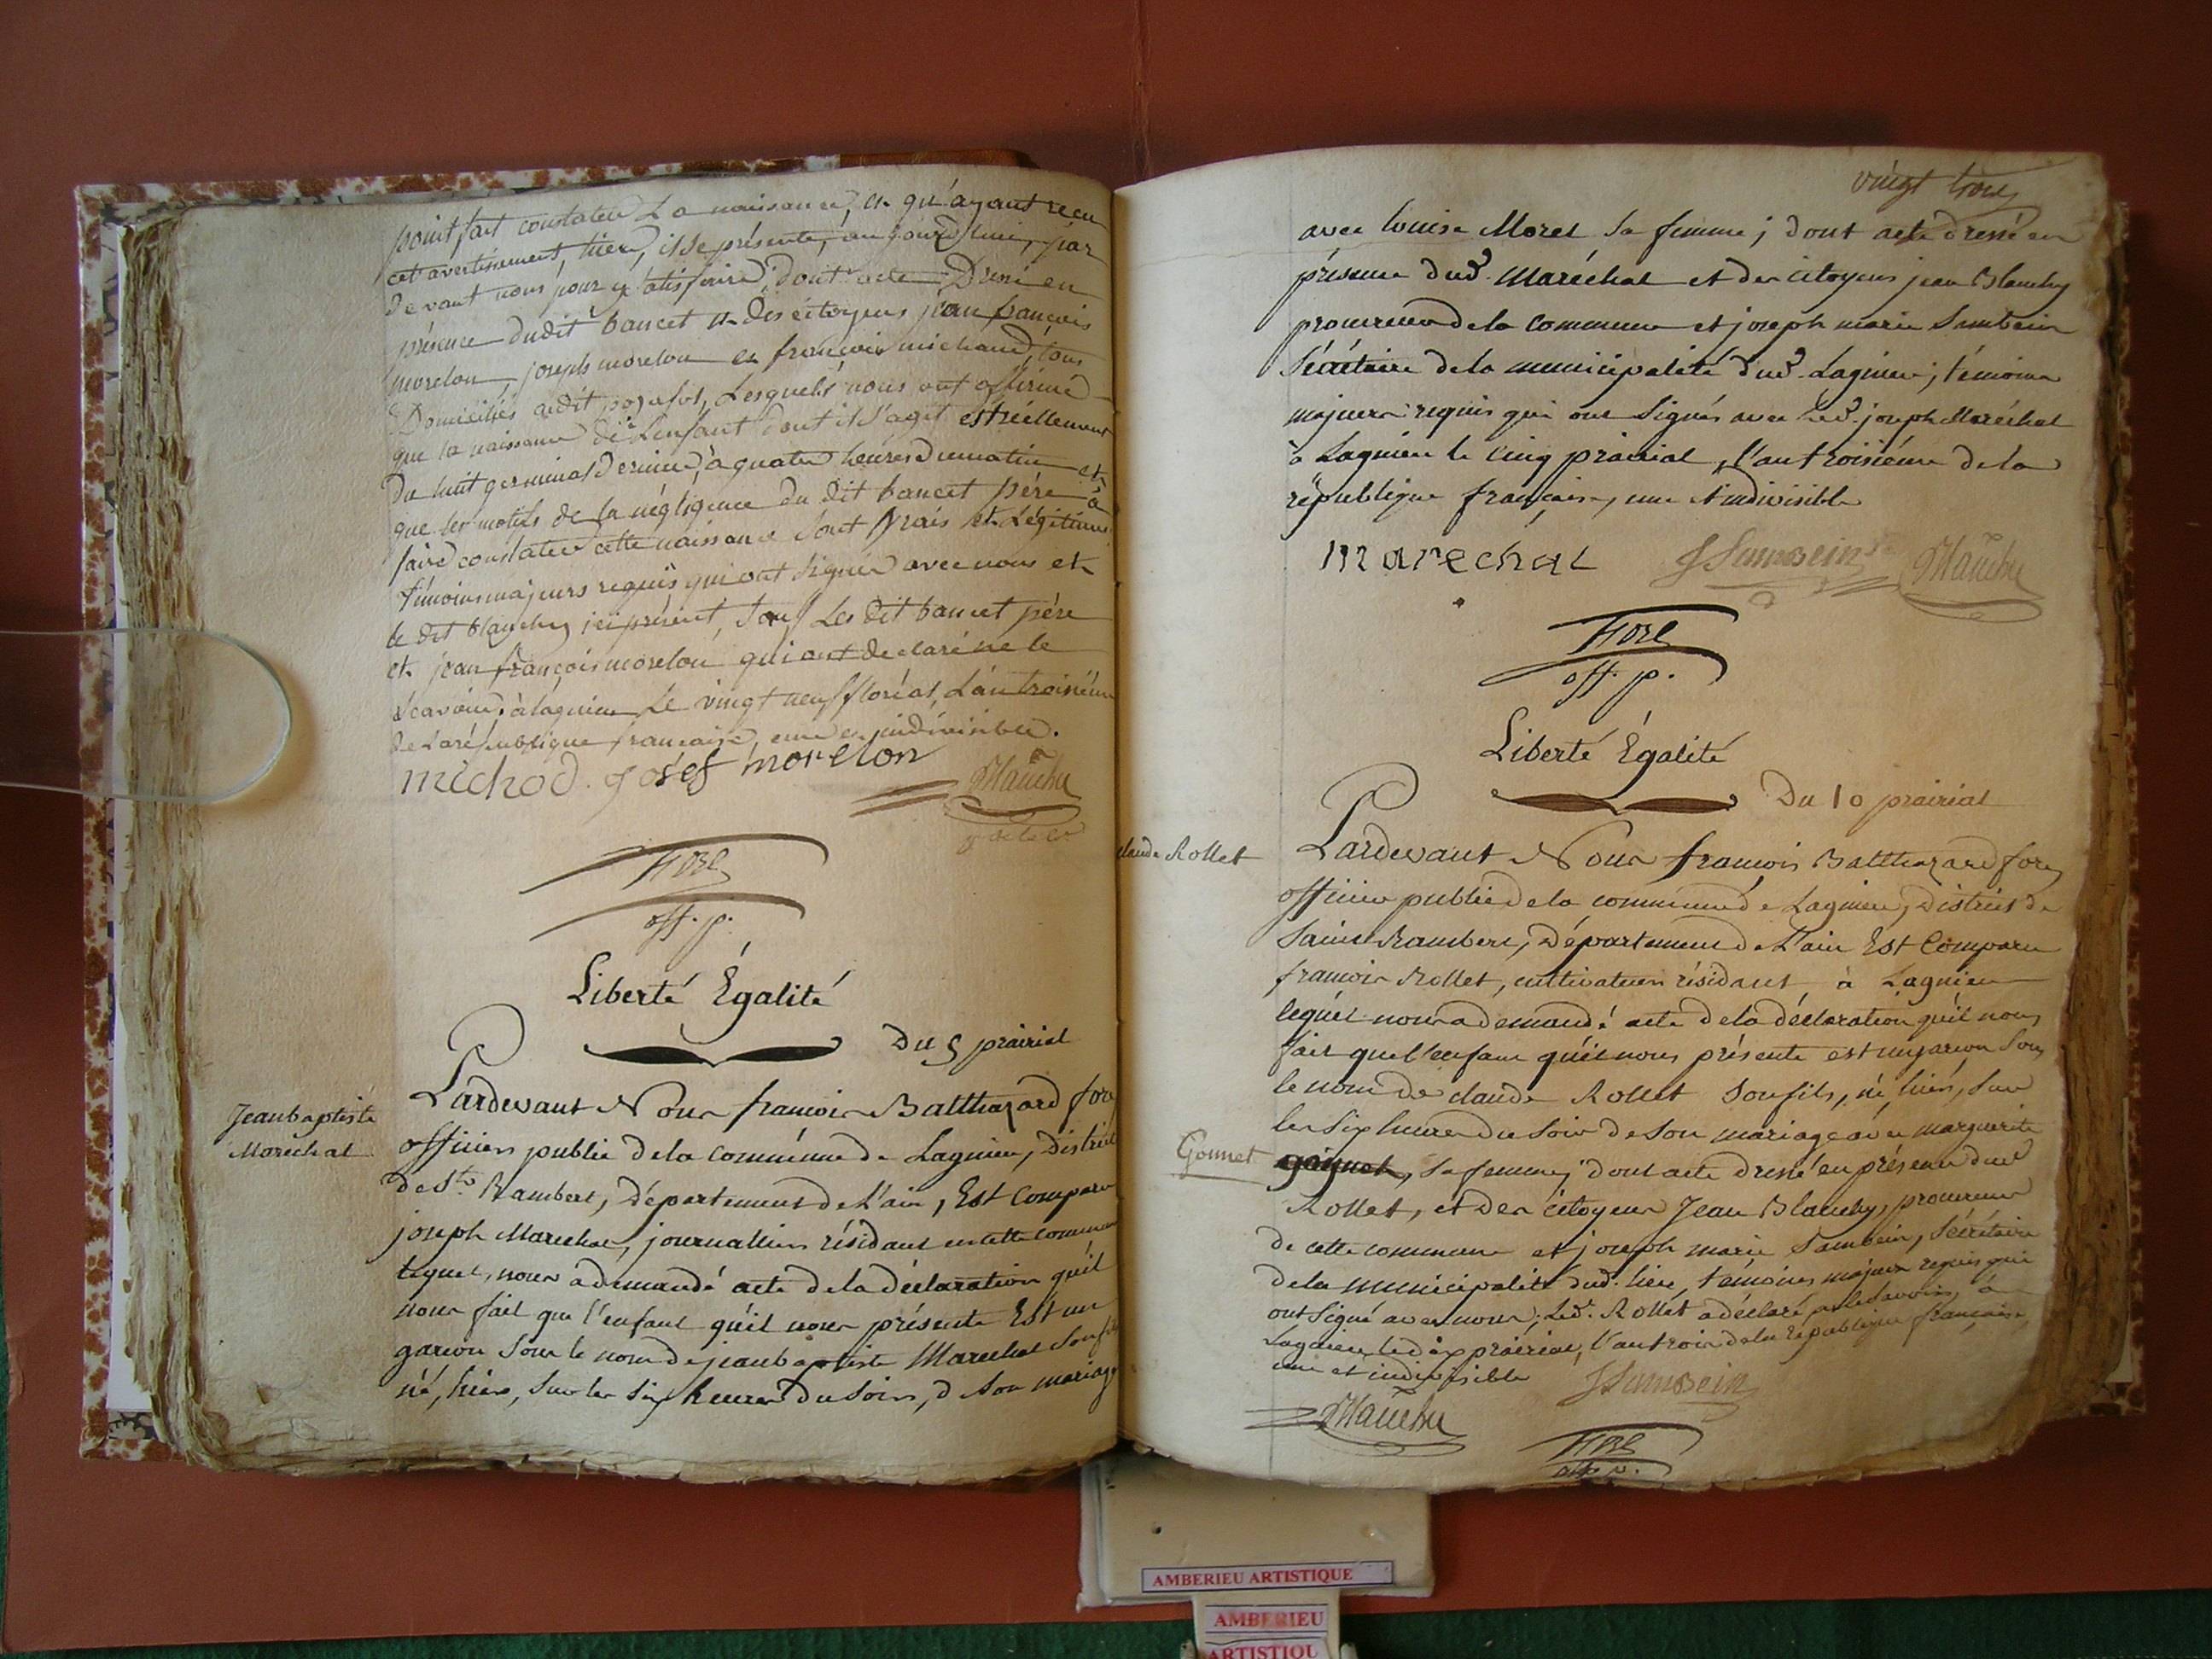 point fait constater La naissance, et qu'ayant reçu
cet avertissement, hier, il se présente, aujourd'hui, par
devant nous pour y satisfaire, dont acte Dressé en
présence dudit bancet et des citoyens jean françois
morelon, joseph morelon et françois michaud, tous
Domiciliés audit, Lesquels nous ont affirmé
que la naissance de L'enfant dont il s'agit est réellement
du huit germinal dernier, à quatre heures du matin et
que les motifs de la négligence du dit bancet père à
faire constater cette naissance sont vrais et Légitimes
témoins majeurs requis qui ont signés avec nous et
le dit blanchy ici présent, sauf Les dit bancet père
et jean françois morelon qui ont declaré ne le
scavoir. à lagnieu Le vingt neuf floréal, L'an troisième
de La république francaise, une et indivisible.
michod. Josef morelon
Blanchy
fore
off. p.
Liberté Égalité
Du 5 prairial
Jean baptiste
Maréchal
Pardevant Nous francois Balthazard fore
officier public de la commune de Lagnieu, District
de St. Rambert, département de L'ain, Est Comparu
joseph Marechal, journallier résidant en cette commune
lequel, nous a demandé acte de la déclaration qu'il
nous fait que l'enfant qu'il nous présente Est un
garcon sous le nom de jean baptiste Marechal son fils
né, hier, sur les six heures du soir, de son mariage
vingt trois
avec louise Morel sa femme; dont acte dressé en
présence dud. Maréchal et des citoyens jean Blanchy
procureur de la commune et joseph marie Sambein
Sécrétaire de la municipalité dud. Lagnieu; témoins
majeurs requis qui ont signés avec led. joseph Maréchal
à Lagnieu le cinq prairial, l'an troisiéme de la
république française, une et indivisible
marechal JSambein Blanchy
fore
off. p.
Liberté Égalité
Du 10 prairial
claude Rollet
Pardevant Nous francois Balthazard fore
officier public de la commune de Lagnieu, District de
Saint Rambert, Département de L'ain Est Comparu
francois Rollet, cultivateur résidant à Lagnieu
lequel nous a demandé acte de la déclaration qu'il nous
fait que l'enfant qu'il nous présente est un garcon sous
le nom de claude Rollet son fils, né, hier, sur
les six heures du soir de son mariage avec marguerite
Gonnet
sa femme; dont acte dressé en présence dud.
Rollet, et des citoyens Jean Blanchy, procureur
de cette commune et joseph marie Sambein, Sécrétaire
de la municipalité dud. lieu, témoins majeurs requis qui
ont signé avec nous; Led. Rollet a déclaré ne le savoir, à
Lagnieu le dix prairial, l'an trois de la république française,
une et indivisible JSambein
Blanchy
fore
off. p.
AMBERIEU ARTISTIQUE
AMBERIEU
ARTISTIQU